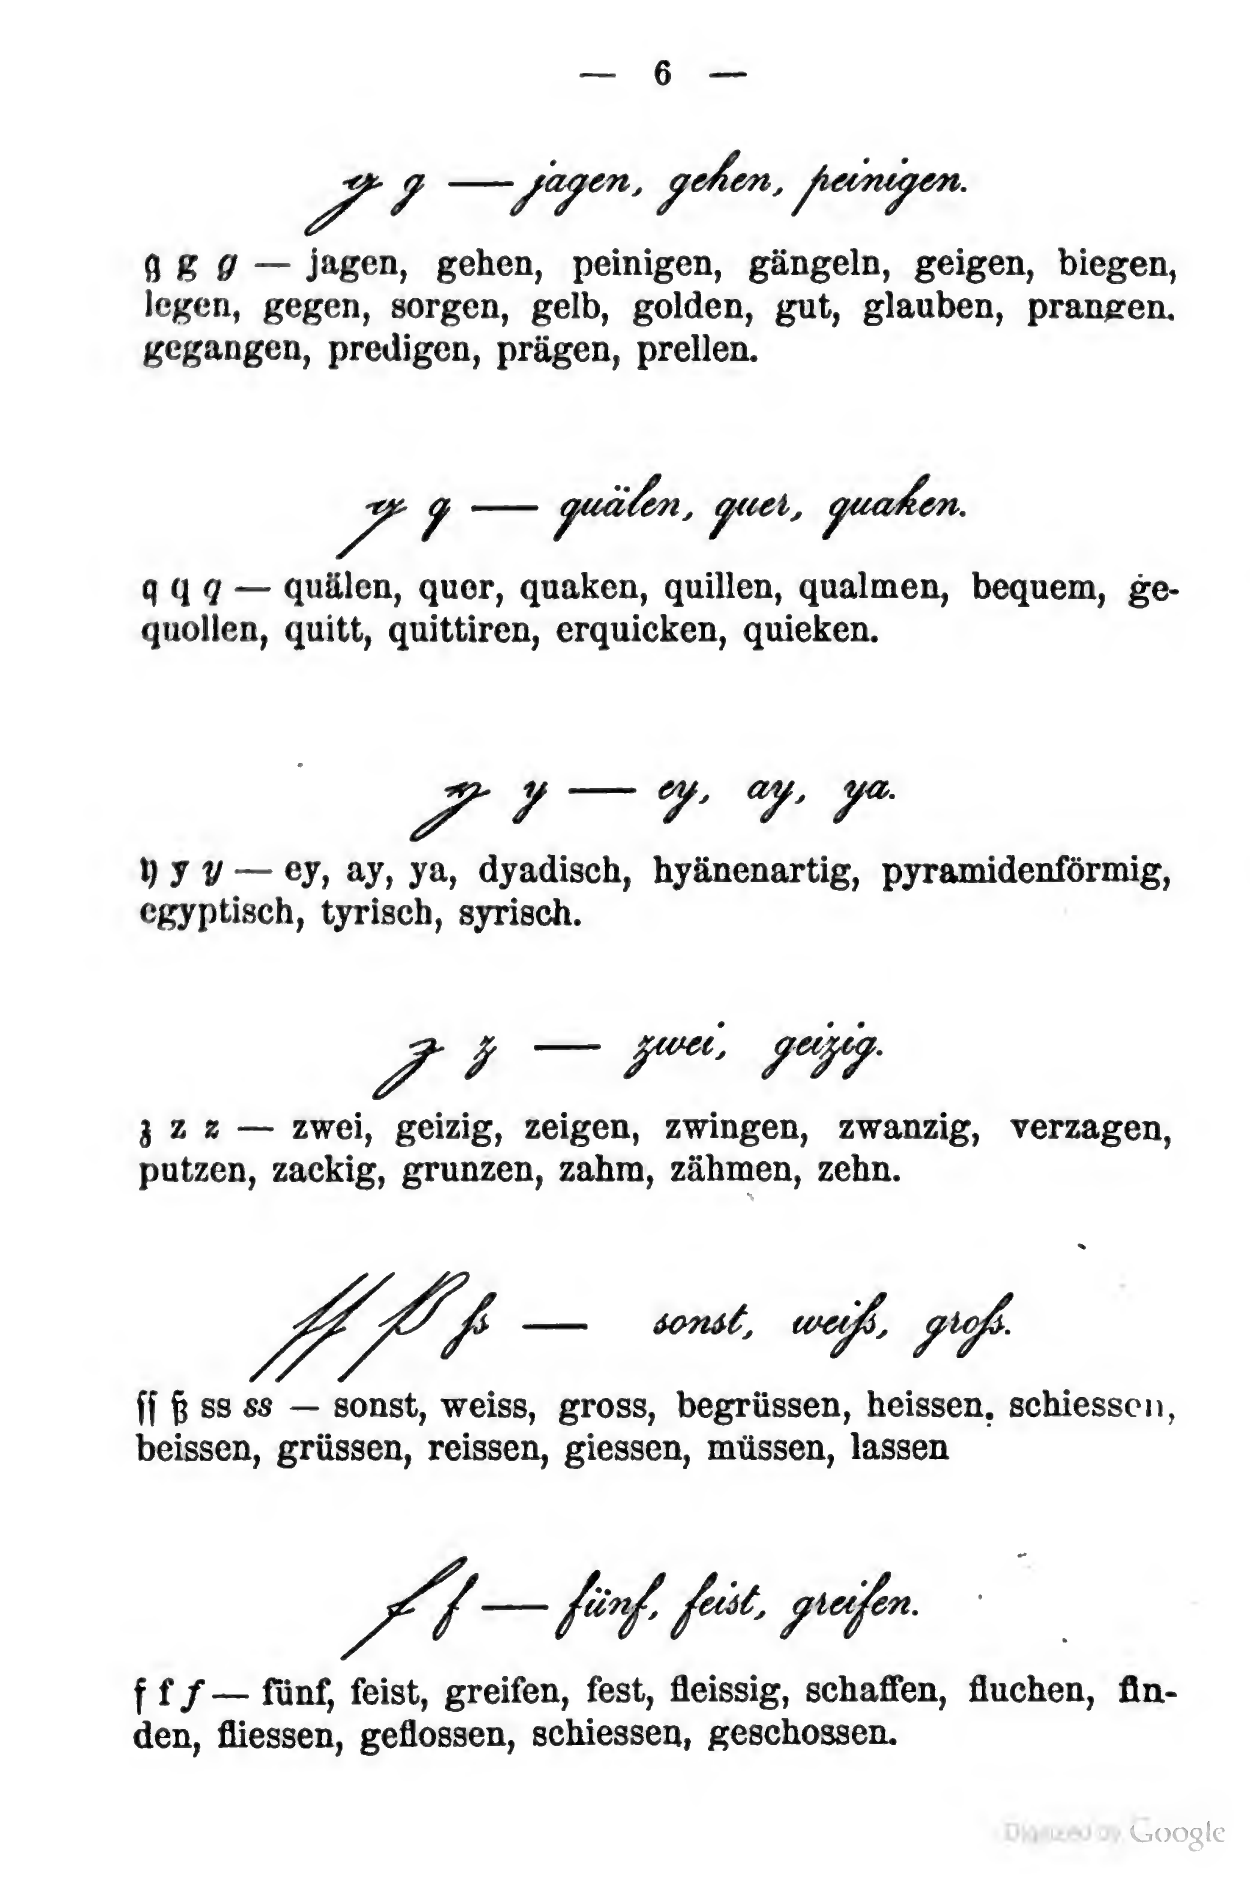 — 6 —
g g — jagen, gehen, peinigen.
g g g — jagen, gehen, peinigen, gängeln, geigen, biegen,
legen, gegen, sorgen, gelb, golden, gut, glauben, prangen.
gegangen, predigen, prägen, prellen.
q q — quälen, quer, quaken.
q q q — quälen, quer, quaken, quillen, qualmen, bequem, ge-
quollen, quitt, quittiren, erquicken, quieken.
y y — ey, ay, ya.
y y y — ey, ay, ya, dyadisch, hyänenartig, pyramidenförmig,
egyptisch, tyrisch, syrisch.
z z — zwei, geizig.
z z z — zwei, geizig, zeigen, zwingen, zwanzig, verzagen,
putzen, zackig, grunzen, zahm, zähmen, zehn.
ſſ ß ß — sonst, weiß, groß.
ſſ ß ss ss — sonst, weiss, gross, begrüssen, heissen, schiessen,
beissen, grüssen, reissen, giessen, müssen, lassen
f f — fünf, feist, greifen.
f f f — fünf, feist, greifen, fest, fleissig, schaffen, fluchen, fin-
den, fliessen, geflossen, schiessen, geschossen.
Digitized by Google